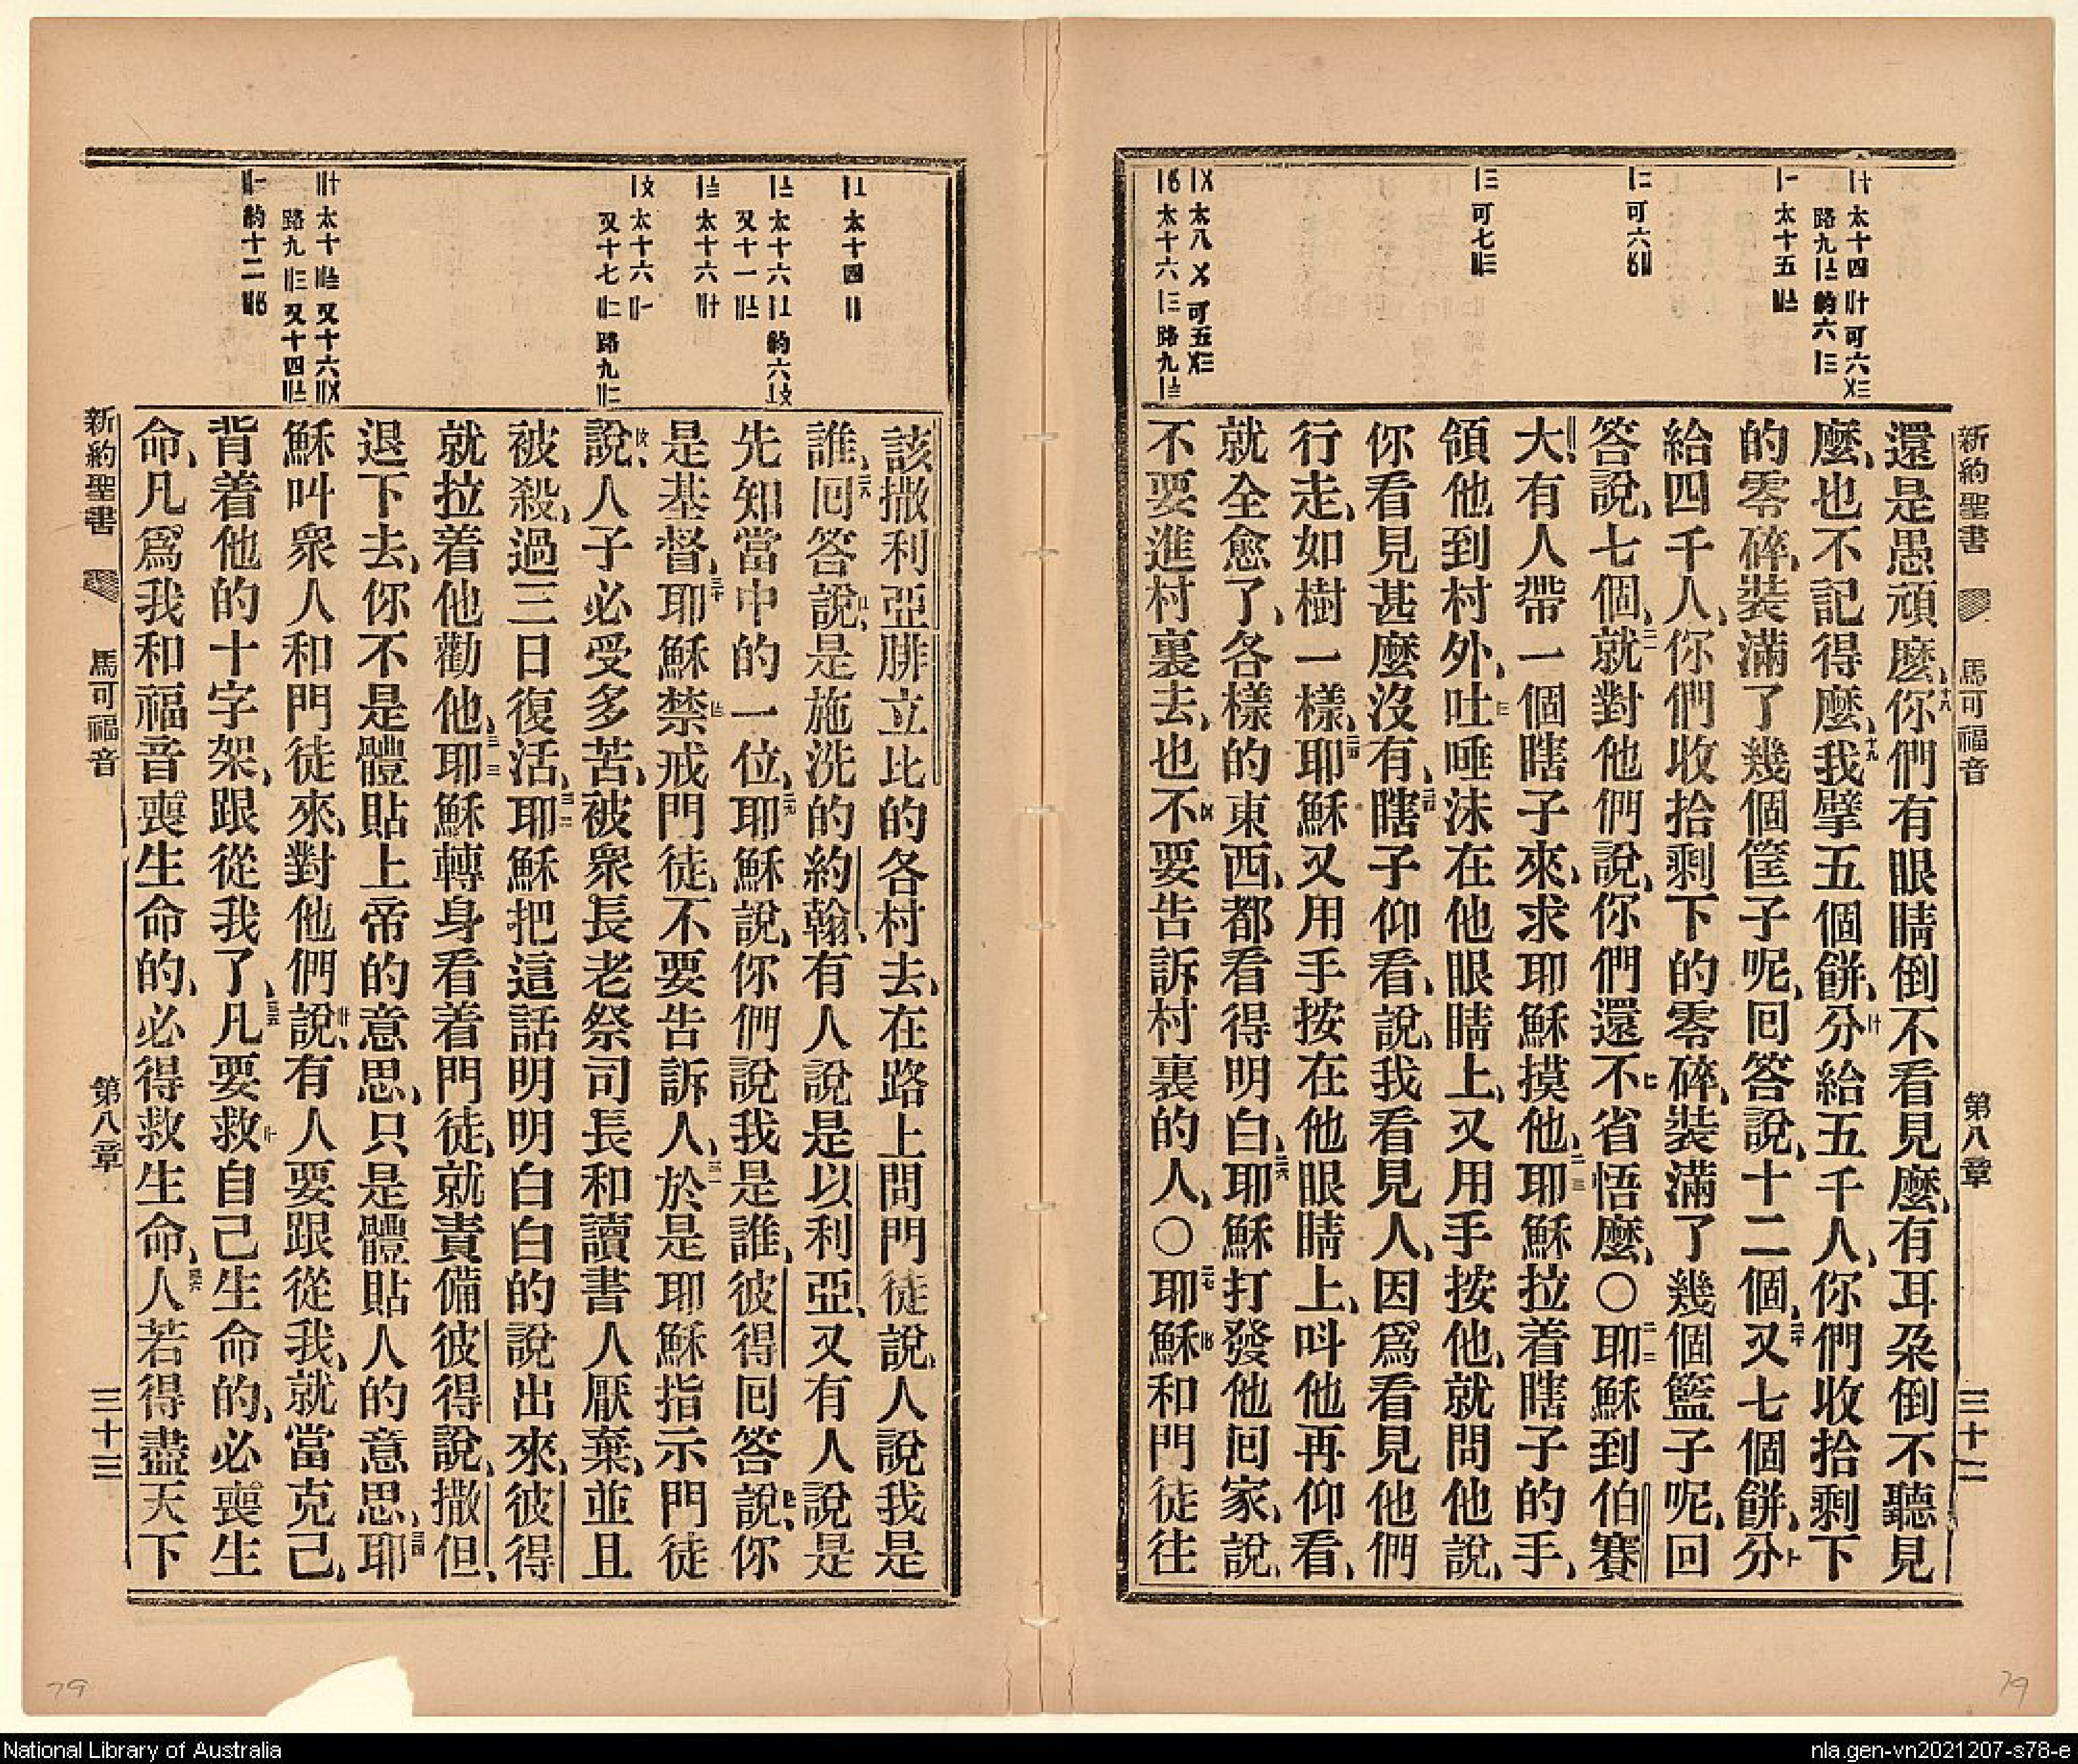 新約聖書 馬可福音 第八章 三十二
還是愚頑麽、你們有眼睛倒不看見麽、有耳朶倒不聽見
麽、也不記得麽、我擘五個餅、分給五千人、你們收拾剩下
的零碎、裝滿了幾個筐子呢、回答說、十二個、又七個餅、分
給四千人、你們收拾剩下的零碎、裝滿了幾個籃子呢、回
答說、七個、就對他們說、你們還不省悟麽、〇耶穌到伯賽
大、有人帶一個瞎子來、求耶穌摸他、耶穌拉着瞎子的手、
領他到村外、吐唾沫在他眼睛上、又用手按他、就問他說、
你看見甚麽沒有、瞎子仰看、說、我看見人、因爲看見他們
行走、如樹一樣、耶穌又用手按在他眼睛上、呌他再仰看、
就全愈了、各樣的東西、都看得明白、耶穌打發他回家、說、
不要進村裏去、也不要告訴村裏的人、〇耶穌和門徒往
該撒利亞腓立比的各村去、在路上問門徒說、人說我是
誰、回答說、是施洗的約翰、有人說是以利亞、又有人說是
先知當中的一位、耶穌說、你們說我是誰、彼得回答說、你
是基督、耶穌禁戒門徒、不要告訴人、於是耶穌指示門徒
說、人子必受多苦、被衆長老祭司長和讀書人厭棄、並且
被殺、過三日復活、耶穌把這話明明白白的說出來、彼得
就拉着他勸他、耶穌轉身看着門徒、就責備彼得說、撒但、
退下去、你不是體貼上帝的意思、只是體貼人的意思、耶
穌叫衆人和門徒來、對他們說、有人要跟從我、就當克己、
背着他的十字架、跟從我了、凡要救自己生命的、必喪生
命、凡爲我和福音喪生命的、必得救生命、人若得盡天下
新約聖書 馬可福音 第八章 三十三
79
79
National Library of Australia
nla.gen-vn2021207-s78-e